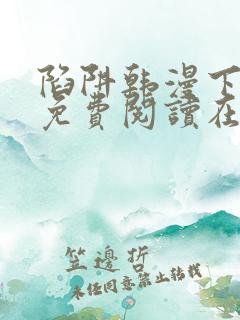 陷阱韩漫下
免費閱讀在
笠邊折
未经同意禁止转载